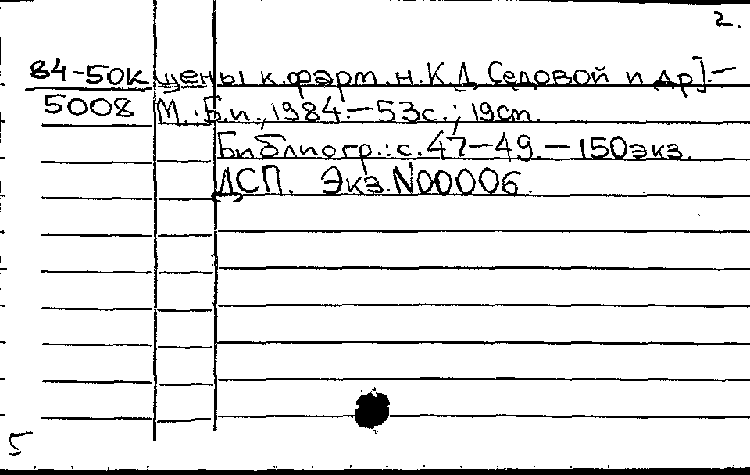 2.
84-50к щены к.фарм.н.К.Д. Седовой и др].—
5008 М.: Б.и., 1984.— 53с.; 19cm.
Библиогр.: с. 47—49.— 150экз.
ДСП. Экз.N00006.
5